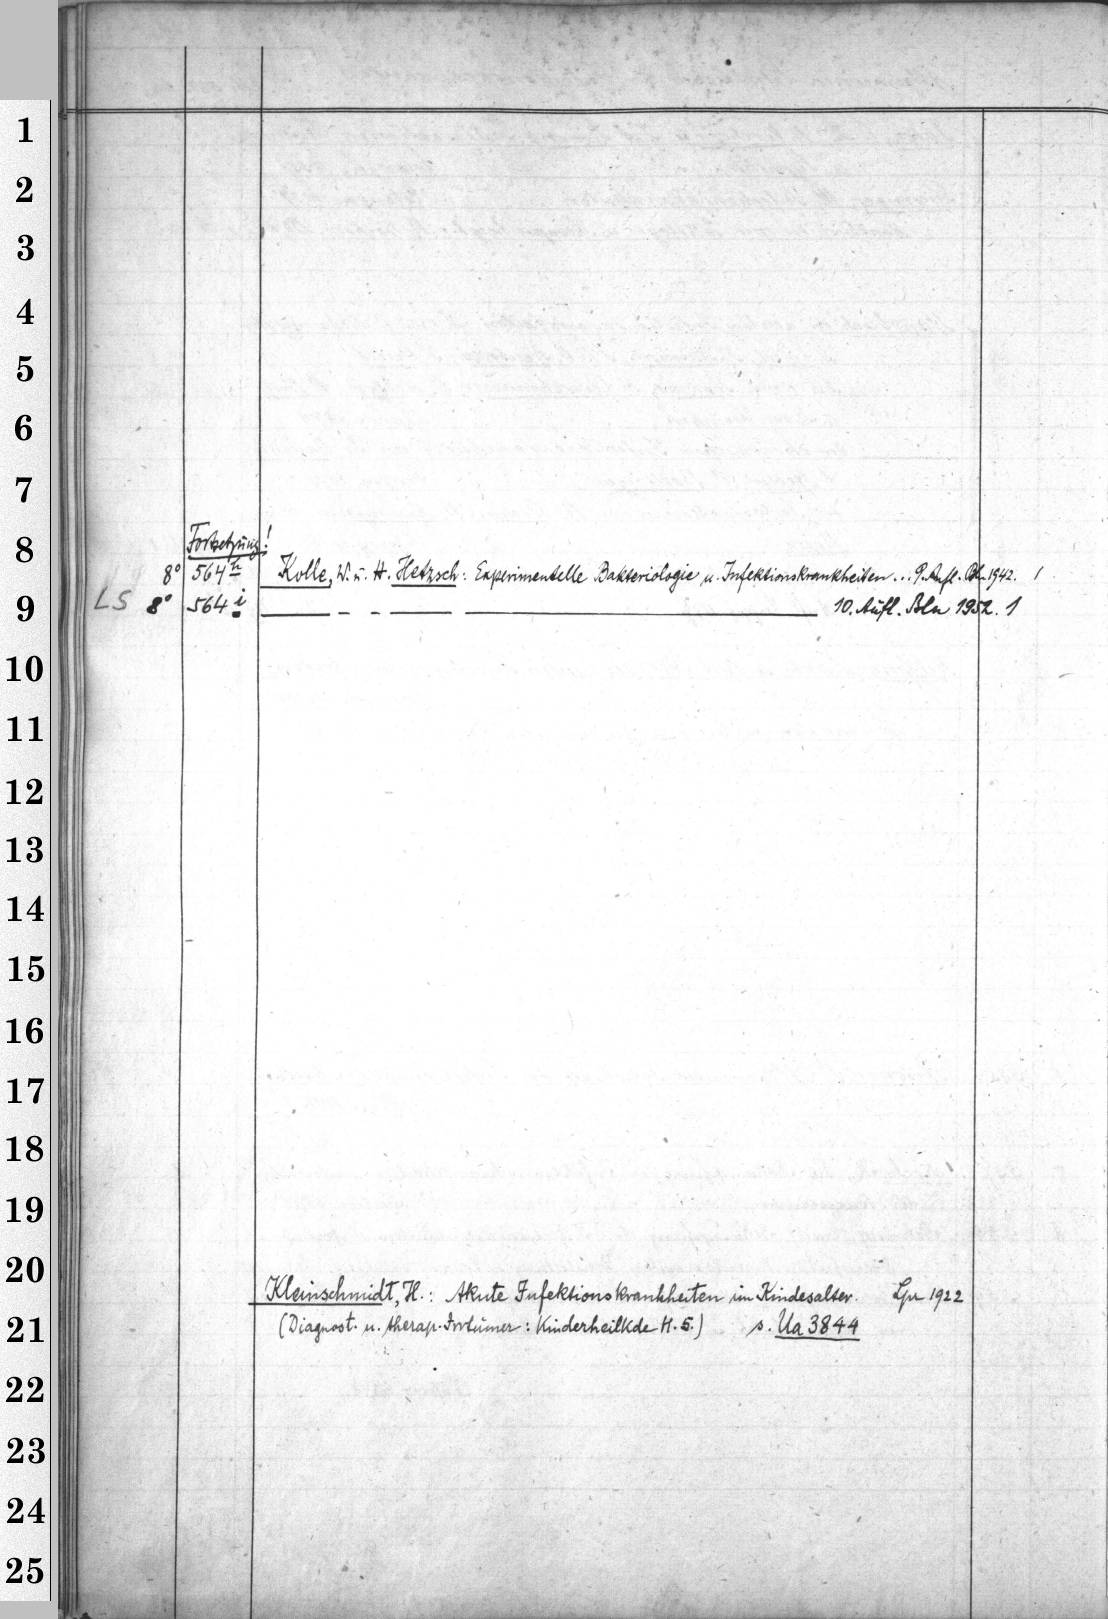 1
2
3
4
5
6
7
8
9
10
11
12
13
14
15
16
17
18
19
20
21
22
23
24
25
Fortsetzung!
8° 564 h Kolle, W. u. H. Hetzsch: Experimentelle Bakteriologie u. Infektionskrankheiten... 9. Aufl. Bln 1942. 1
LS 8° 564 i — – – — — 10. Aufl. Bln 1952. 1
Kleinschmidt, H.: Akute Infektionskrankheiten im Kindesalter. Lpz 1922
(Diagnost. u. therap. Irrtümer: Kinderheilkde H. 5.) s. Ua 3844